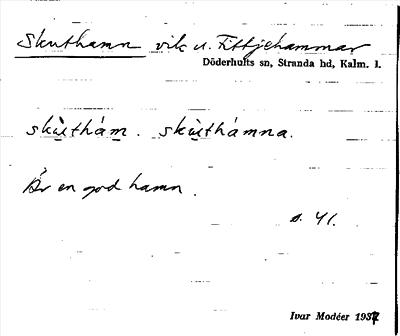 Skuthamn vik u. Fittjehammar
Döderhults sn, Stranda hd, Kalm. l.
skùthám. skùthámna.
Är en god hamn.
s. 41.
Ivar Modéer 1937